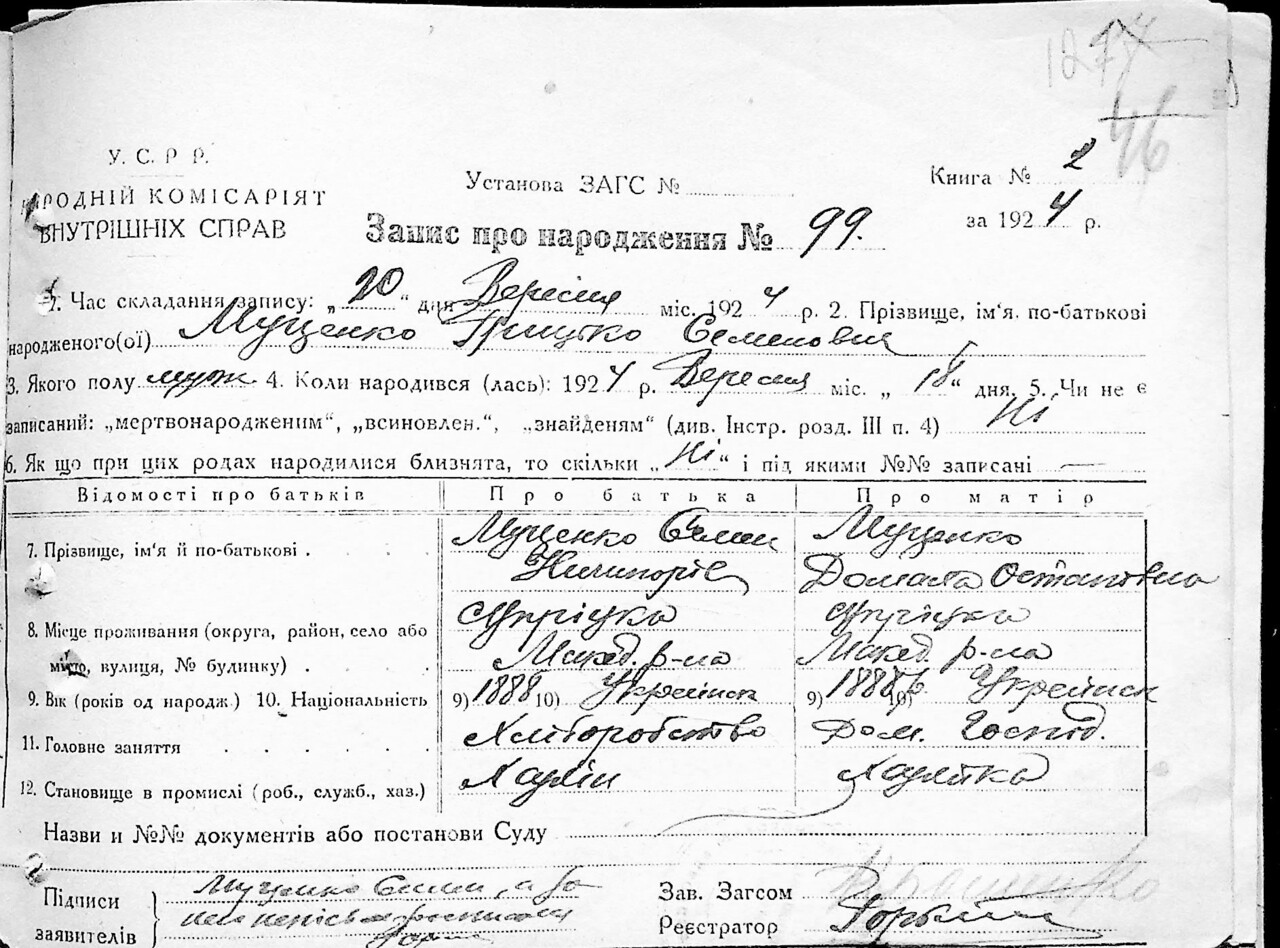 1274
46
У. С. Р Р.
НАРОДНІЙ КОМІСАРІЯТ
ВНУТРІШНІХ СПРАВ
Установа ЗАГС №
Книга № 2
за 1924 р.
Запис про народження № 99.
1. Час складання запису: „20" дня Вересня міс. 1924 р. 2. Прізвище, ім'я. по-батькові
народженого(ої) Муценко Грицько Семенович
3. Якого полу муж 4. Коли народився (лась): 1924 р. Вересня міс. „18" дня. 5. Чи не є
записаний: „мертвонародженим", „всиновлен.", „знайденям" (див. Інстр. розд. III п. 4) Ні
6. Як що при цих родах народилися близнята, то скільки „Ні" і під якими №№ записані —
Відомості про батьків Про батька Про матір
7. Прізвище, ім'я й по-батькові . Муценко Семен Муценко
Ничипорів Остаповна
8. Місце проживання (округа, район, село або
місто, вулиця, № будинку) . Макед. р-на Макед. р-на
9. Вік (років од народж.) 10. Національність 9) 1888 10) Україн 9) 10) Україн
11. Головне заняття . . . . . Хліборобство Дом. Госпід.
12. Становище в промислі (роб., служб., хаз.) Хазяїн Хазяйка
Назви и №№ документів або постанови Суду
Підписи Муценко Семен, а за
заявителів
Зав. Загсом
Реєстратор